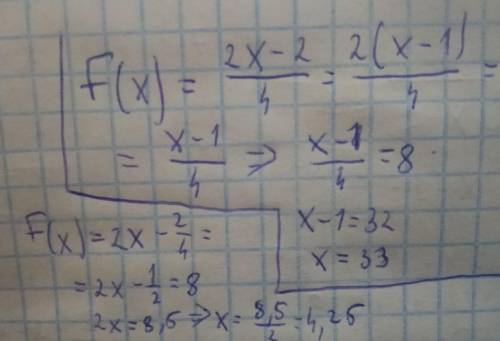 F(x) = (2x-2)/4 = 2(x-1)/4 =
= (x-1)/4 ⇒ (x-1)/4 = 8
x-1=32
x=33
F(x)=2x-2/4=
=2x-1/2=8
2x=8,5 ⇒ x=8,5/2=4,25